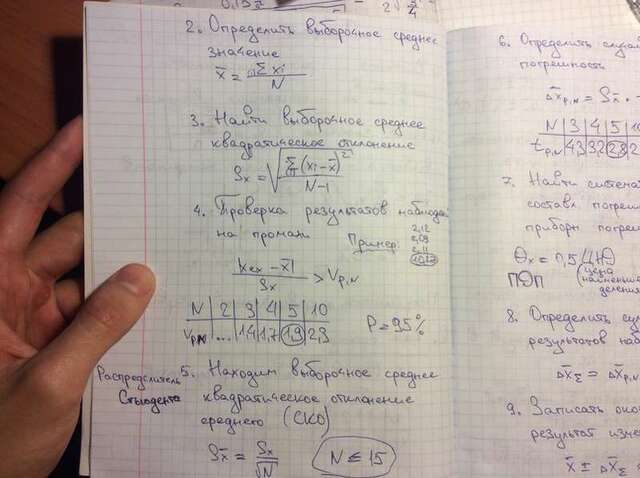 2. Определить выборочное среднее
значение
x̄ = Σxi / N
3. Найти выборочное среднее
квадратическое отклонение
Sx = √(Σ(xi-x̄)² / N-1)
4. Проверка результатов наблюд
на промахи
Пример:
2,12
2,11
|xex - x̄| / Sx > Vp,N
N | 2 | 3 | 4 | 5 | 10
Vp,N | .... | 1,4 | 1,7 | 1,9 | 2,3
P = 95%
Распределитель
Стьюдента
5. Находим выборочное среднее
квадратическое отклонение
среднего (СКО)
Sx̄ = Sx / √N
N ≤ 15
6. Определить случай
погрешность
Δx̄p,N = Sx̄ ·
N | 3 | 4 | 5 | 10
tp,N | 4,3 | 3,2 | 2,8 | 2
7. Найти система
состави погреш
приборн погре
θx = 0,5 ЦНД
ПОП
(цена
наименьшего
деления
8. Определить су
результатов наб
Δx̄Σ = Δx̄p,N
9. Записать око
результат изме
x̄ ± Δx̄Σ =